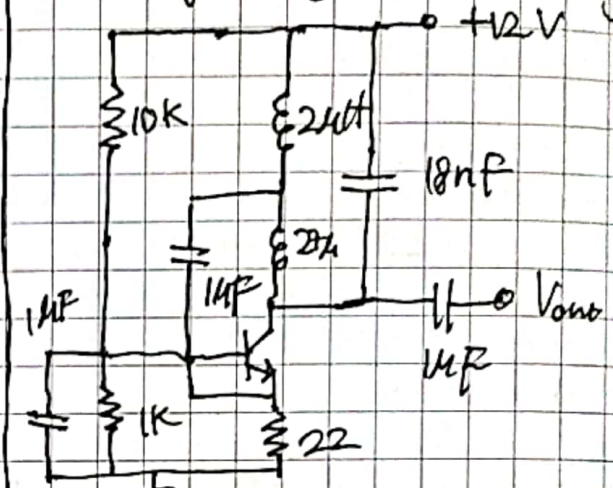 +12V
10K
2μH
18nF
1μF
1μF
Vout
1μF
1K
22